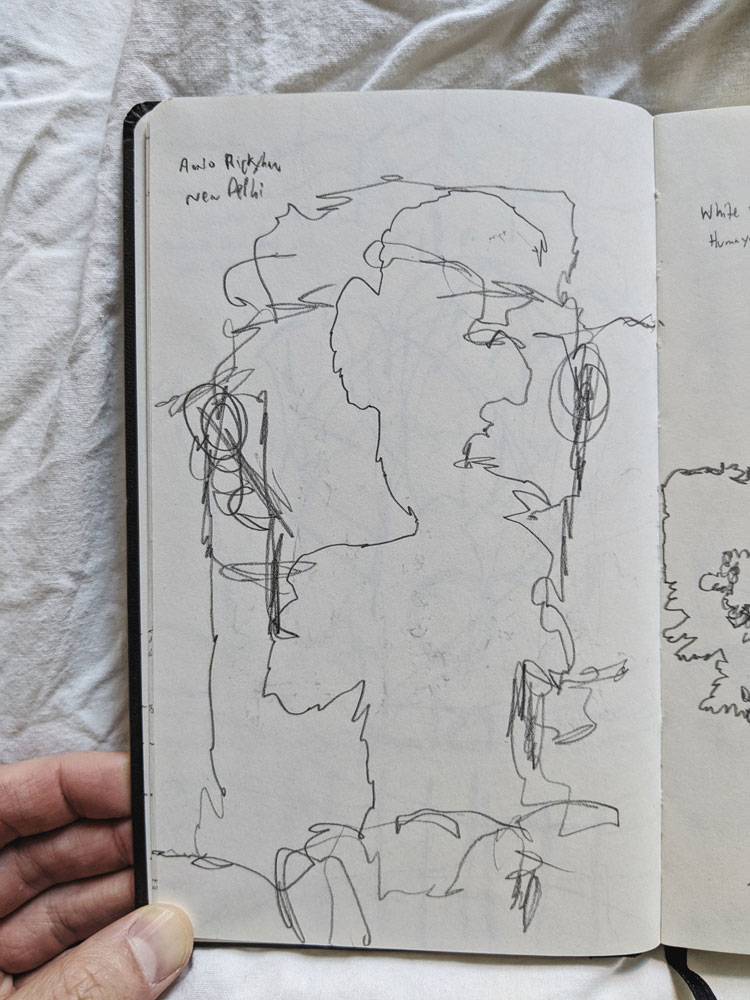 Auto Rickshaw
New Delhi
White
Humay